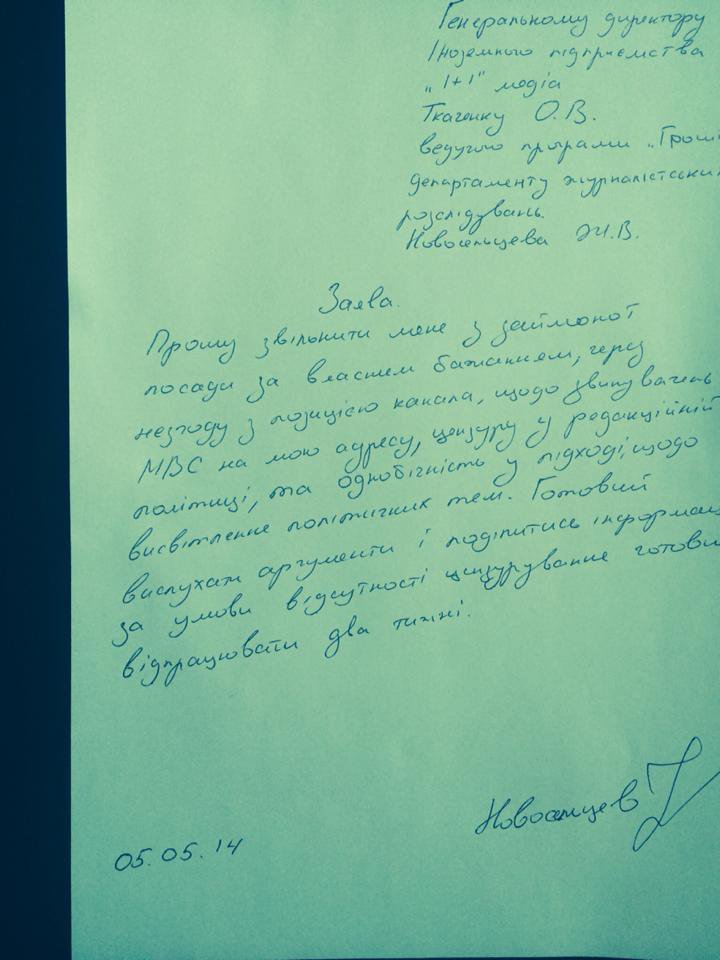 Генеральному директору
Іноземного підприємства
„1+1" медіа
Ткаченку О.В.
ведучого програми „Гроші
департаменту журналістських
розслідувань.
Новосельцева Ж.В.
Заява.
Прошу звільнити мене з займаної
посади за власним бажанням, через
незгоду з позицією канала, щодо звинувачень
МВС на мою адресу, цензуру у редакційній
політиці, та однобічність у підході, щодо
висвітлення політичних тем. Готовий
вислухати аргументи і поділитись інформац
за умови відсутності цензурування готовий
відпрацювати два тижні.
Новосельцев
05.05.14